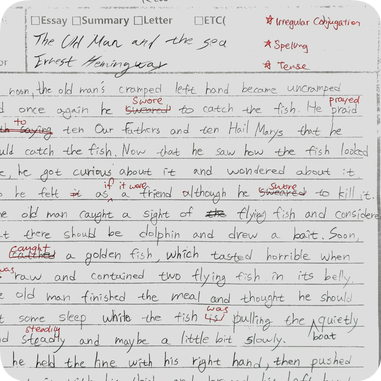 □Essay □Summary □Letter □ETC(
★ Irregular Conjugation
The Old Man and the sea
★ Spelling
Ernest Hemingway
★ Tense
noon, the old man's cramped left hand became uncramped
swore prayed
d once again he sweared to catch the fish. He praid
to
saying ten Our Fathers and ten Hail Marys that he
uld catch the fish. Now that he saw how the fish looked
e, he got curious about it and wondered about it.
if it were swore
o he felt it as a friend although he sweared to kill it.
e old man caught a sight of the flying fish and considere
t there should be dolphin and drew a bait. Soon,
caught
a golden fish, which tasted horrible when
was
raw and contained two flying fish in its belly.
e old man finished the meal and thought he should
was
t some sleep while the fish is pulling the quietly
steadily boat
d steadly and maybe a little bit slowly.
he held the line with his right hand, then pushed